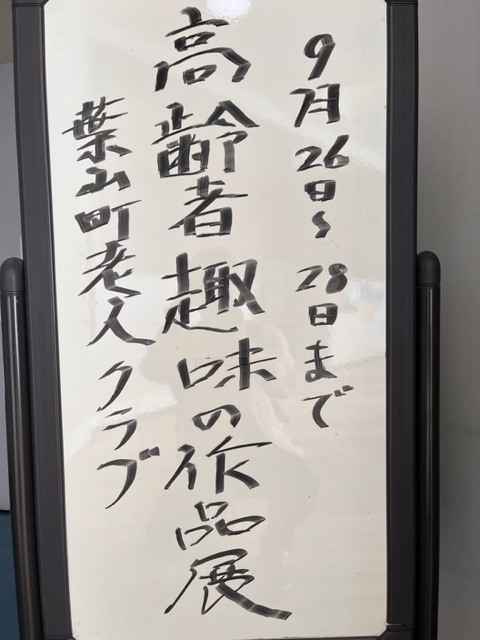 9月26日〜28日まで
高齢者趣味の作品展
葉山町老人クラブ